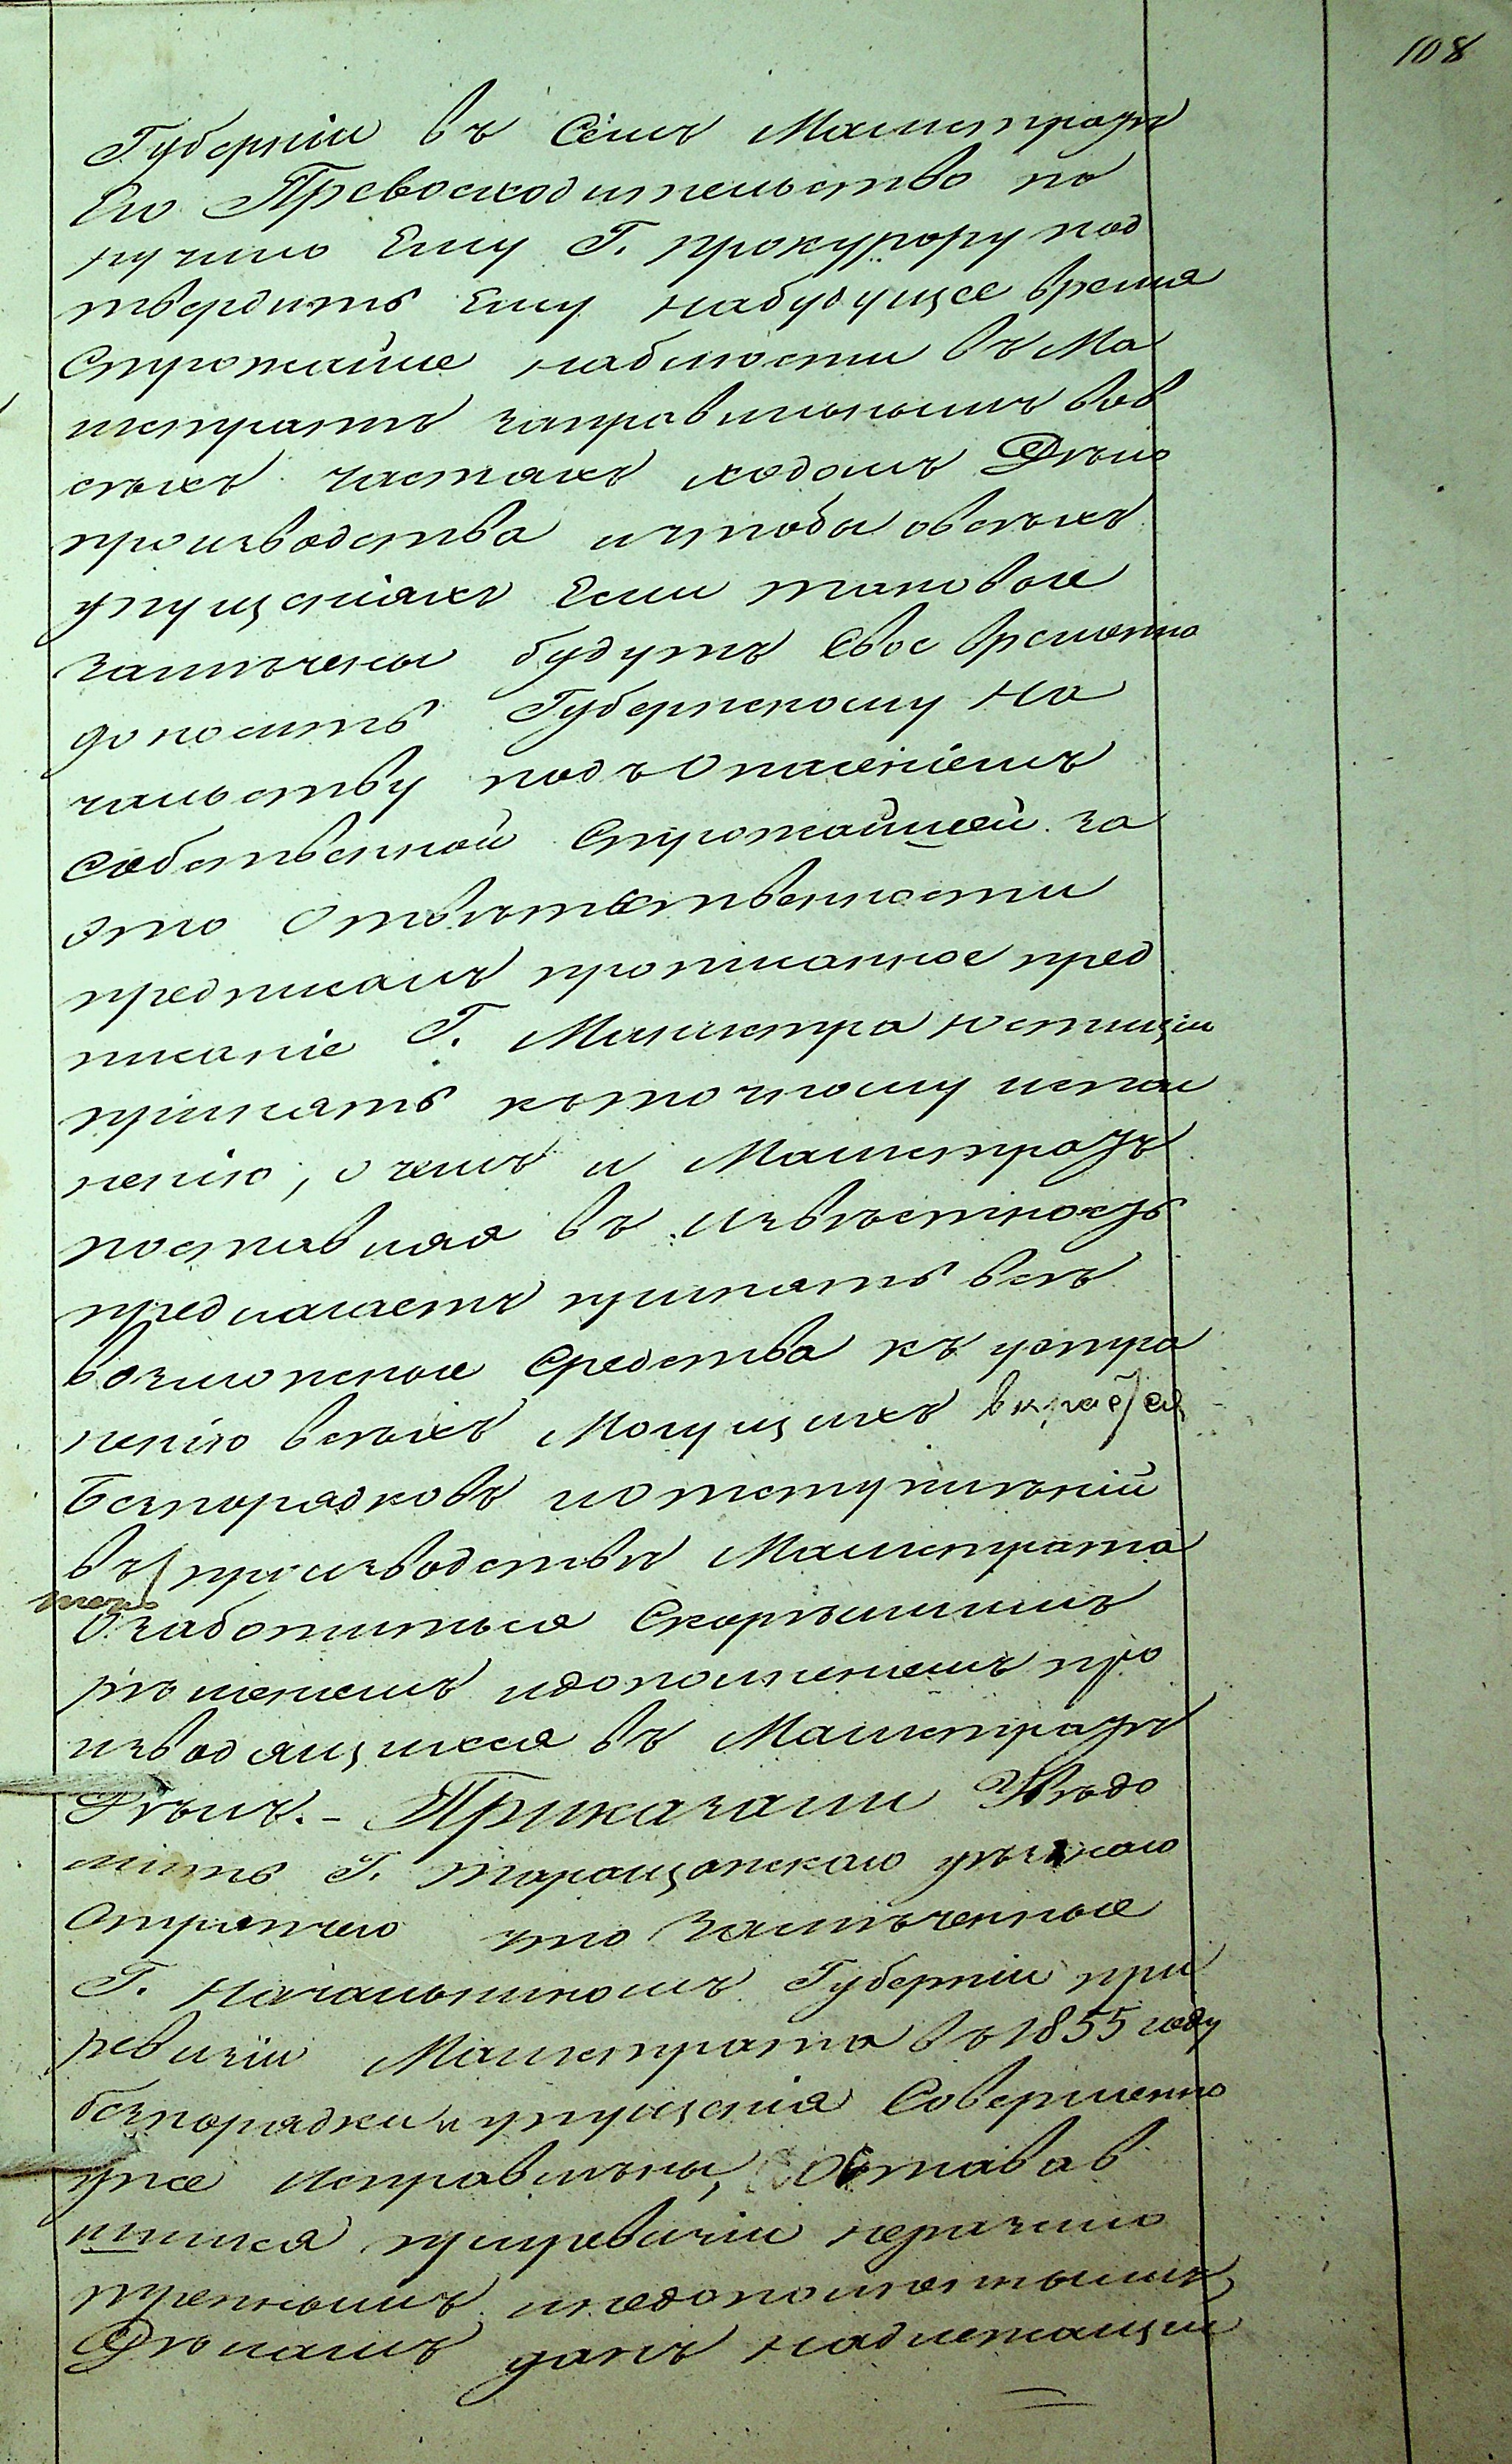 108
Губерніи въ Семъ Магистратѣ
Его Превосходительство по
ручило Ему Г. прокурору под
твердить Ему набудущее время
Строжайше наблюсти въ Ма
гистратѣ заправильнымъ вов
сѣхъ частяхъ ходомъ Дѣло
производства ичтобы овсѣхъ
упущеніяхъ Если таковые
замѣчены будутъ Свое временно
доносить Губернскому На
чальству подъ Опасеніемъ
Собственной Строжайшей за
это Отвѣтственности
предписалъ прописанное пред
писаніе Г. Министра юстиціи
принять кьточному испол
ненію, о чемъ и Магистратъ
поставляя въ извѣстность
предлагаетъ принять всѣ
возможные Средства къ устра
ненію всѣхъ Могущихъ
Безпорядковъ иотступленій
въ производствѣ Магистрата
Озаботиться Скорѣйшимъ
рѣшеніемъ идополненіемъ про
изводящихся въ Магистратѣ
Дѣлъ. - Приказали Увѣдо
мить Г. таращанскаго уѣзнаго
Стряпчего что Замѣченные
Г. Начальникомъ Губерніи при
ревизіи Магистрата въ 1855 году
безпорядки и упущенія Совершенно
уже исправлены, Оставав
шимся приревизіи неразсмо
треннымъ инедополненнымъ
Дѣламъ данъ надлежащій